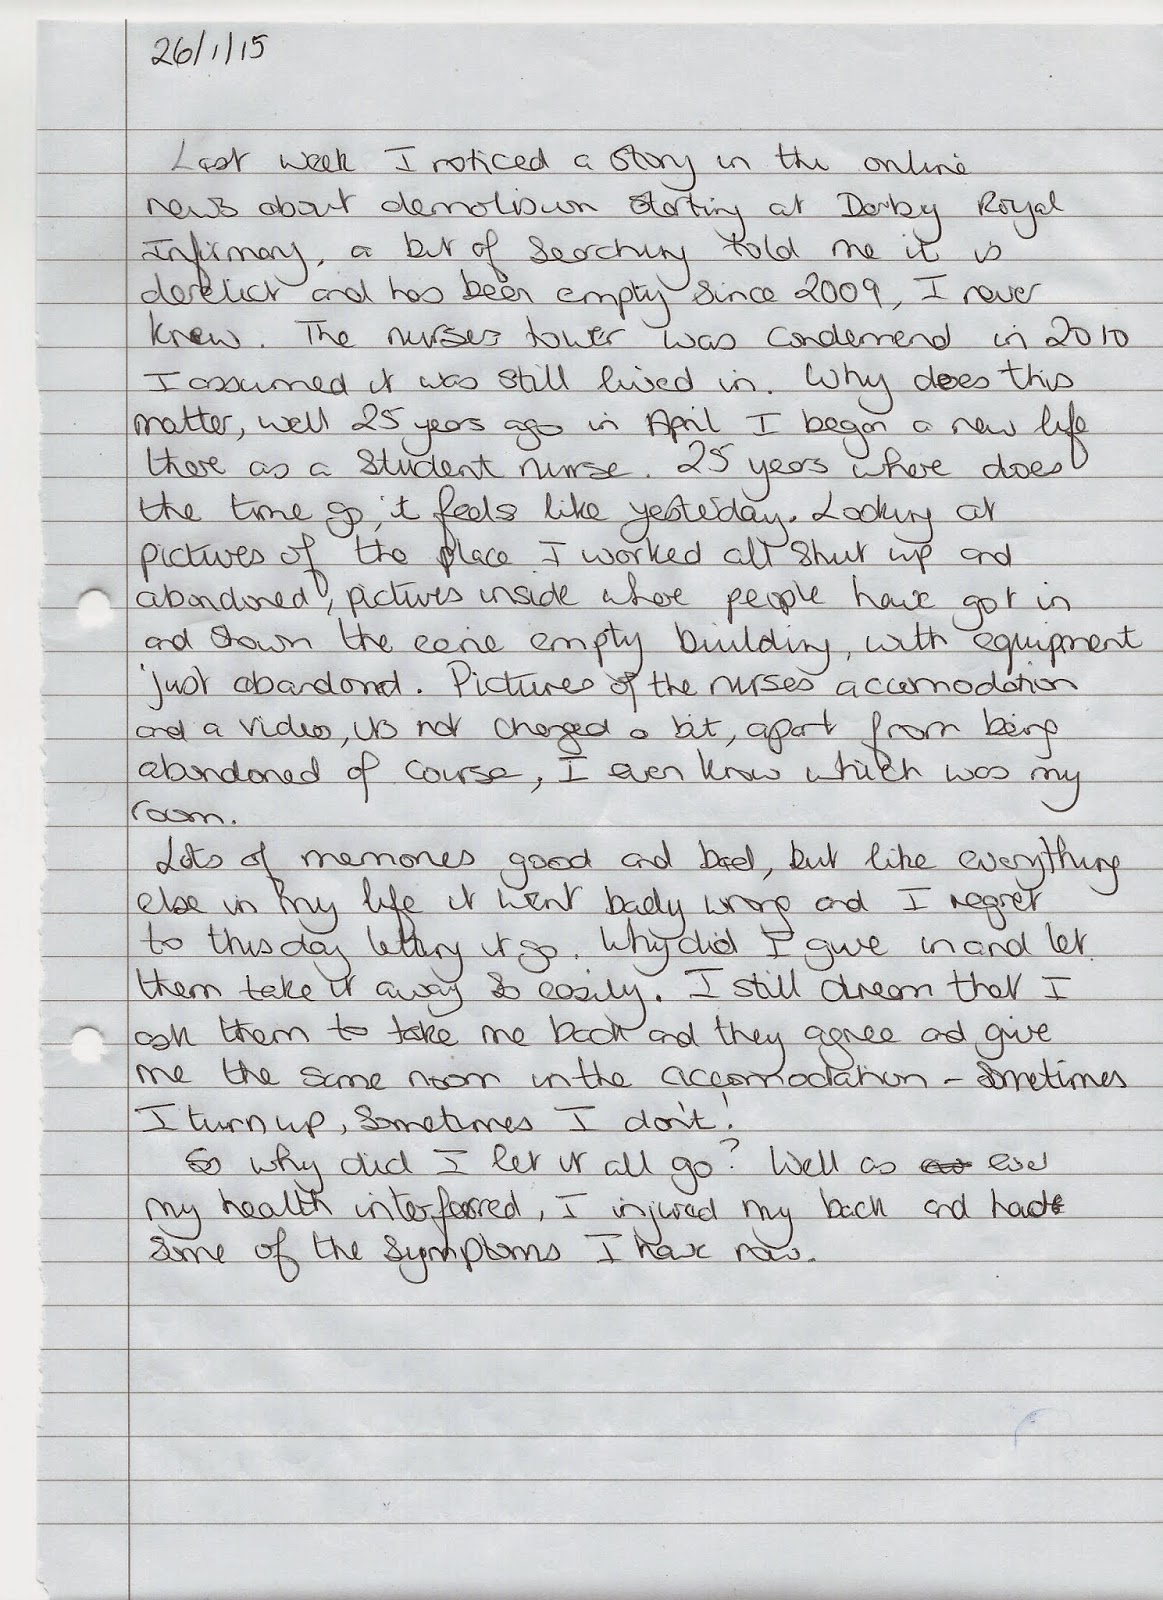 26/1/15
Last week I noticed a story in the online
news about demolisun starting at Derby Royal
Infirmary, a bit of searching told me it is
derelict and has been empty since 2009, I never
knew. The nurses tower was condemend in 2010
I assumed it was still lived in. Why does this
matter, well 25 years ago in April I began a new life
there as a student nurse. 25 years where does
the time go, it feels like yesterday. Looking at
pictures of the place I worked all shut up and
abandoned, pictures inside where people have got in
and shown the eerie empty building, with equipment
just abandond. Pictures of the nurses accomodation
and a video, its not changed a bit, apart from being
abandoned of course, I even know which was my
room.
Lots of memories good and bad, but like everything
else in my life it went badly wrong and I regret
to this day letting it go. Why did I give in and let
them take it away so easily. I still dream that I
ask them to take me back and they agree and give
me the same room in the accomodation - sometimes
I turn up, sometimes I don't!
So why did I let it all go? Well as ever
my health interferred, I injured my back and had
some of the symptoms I have now.